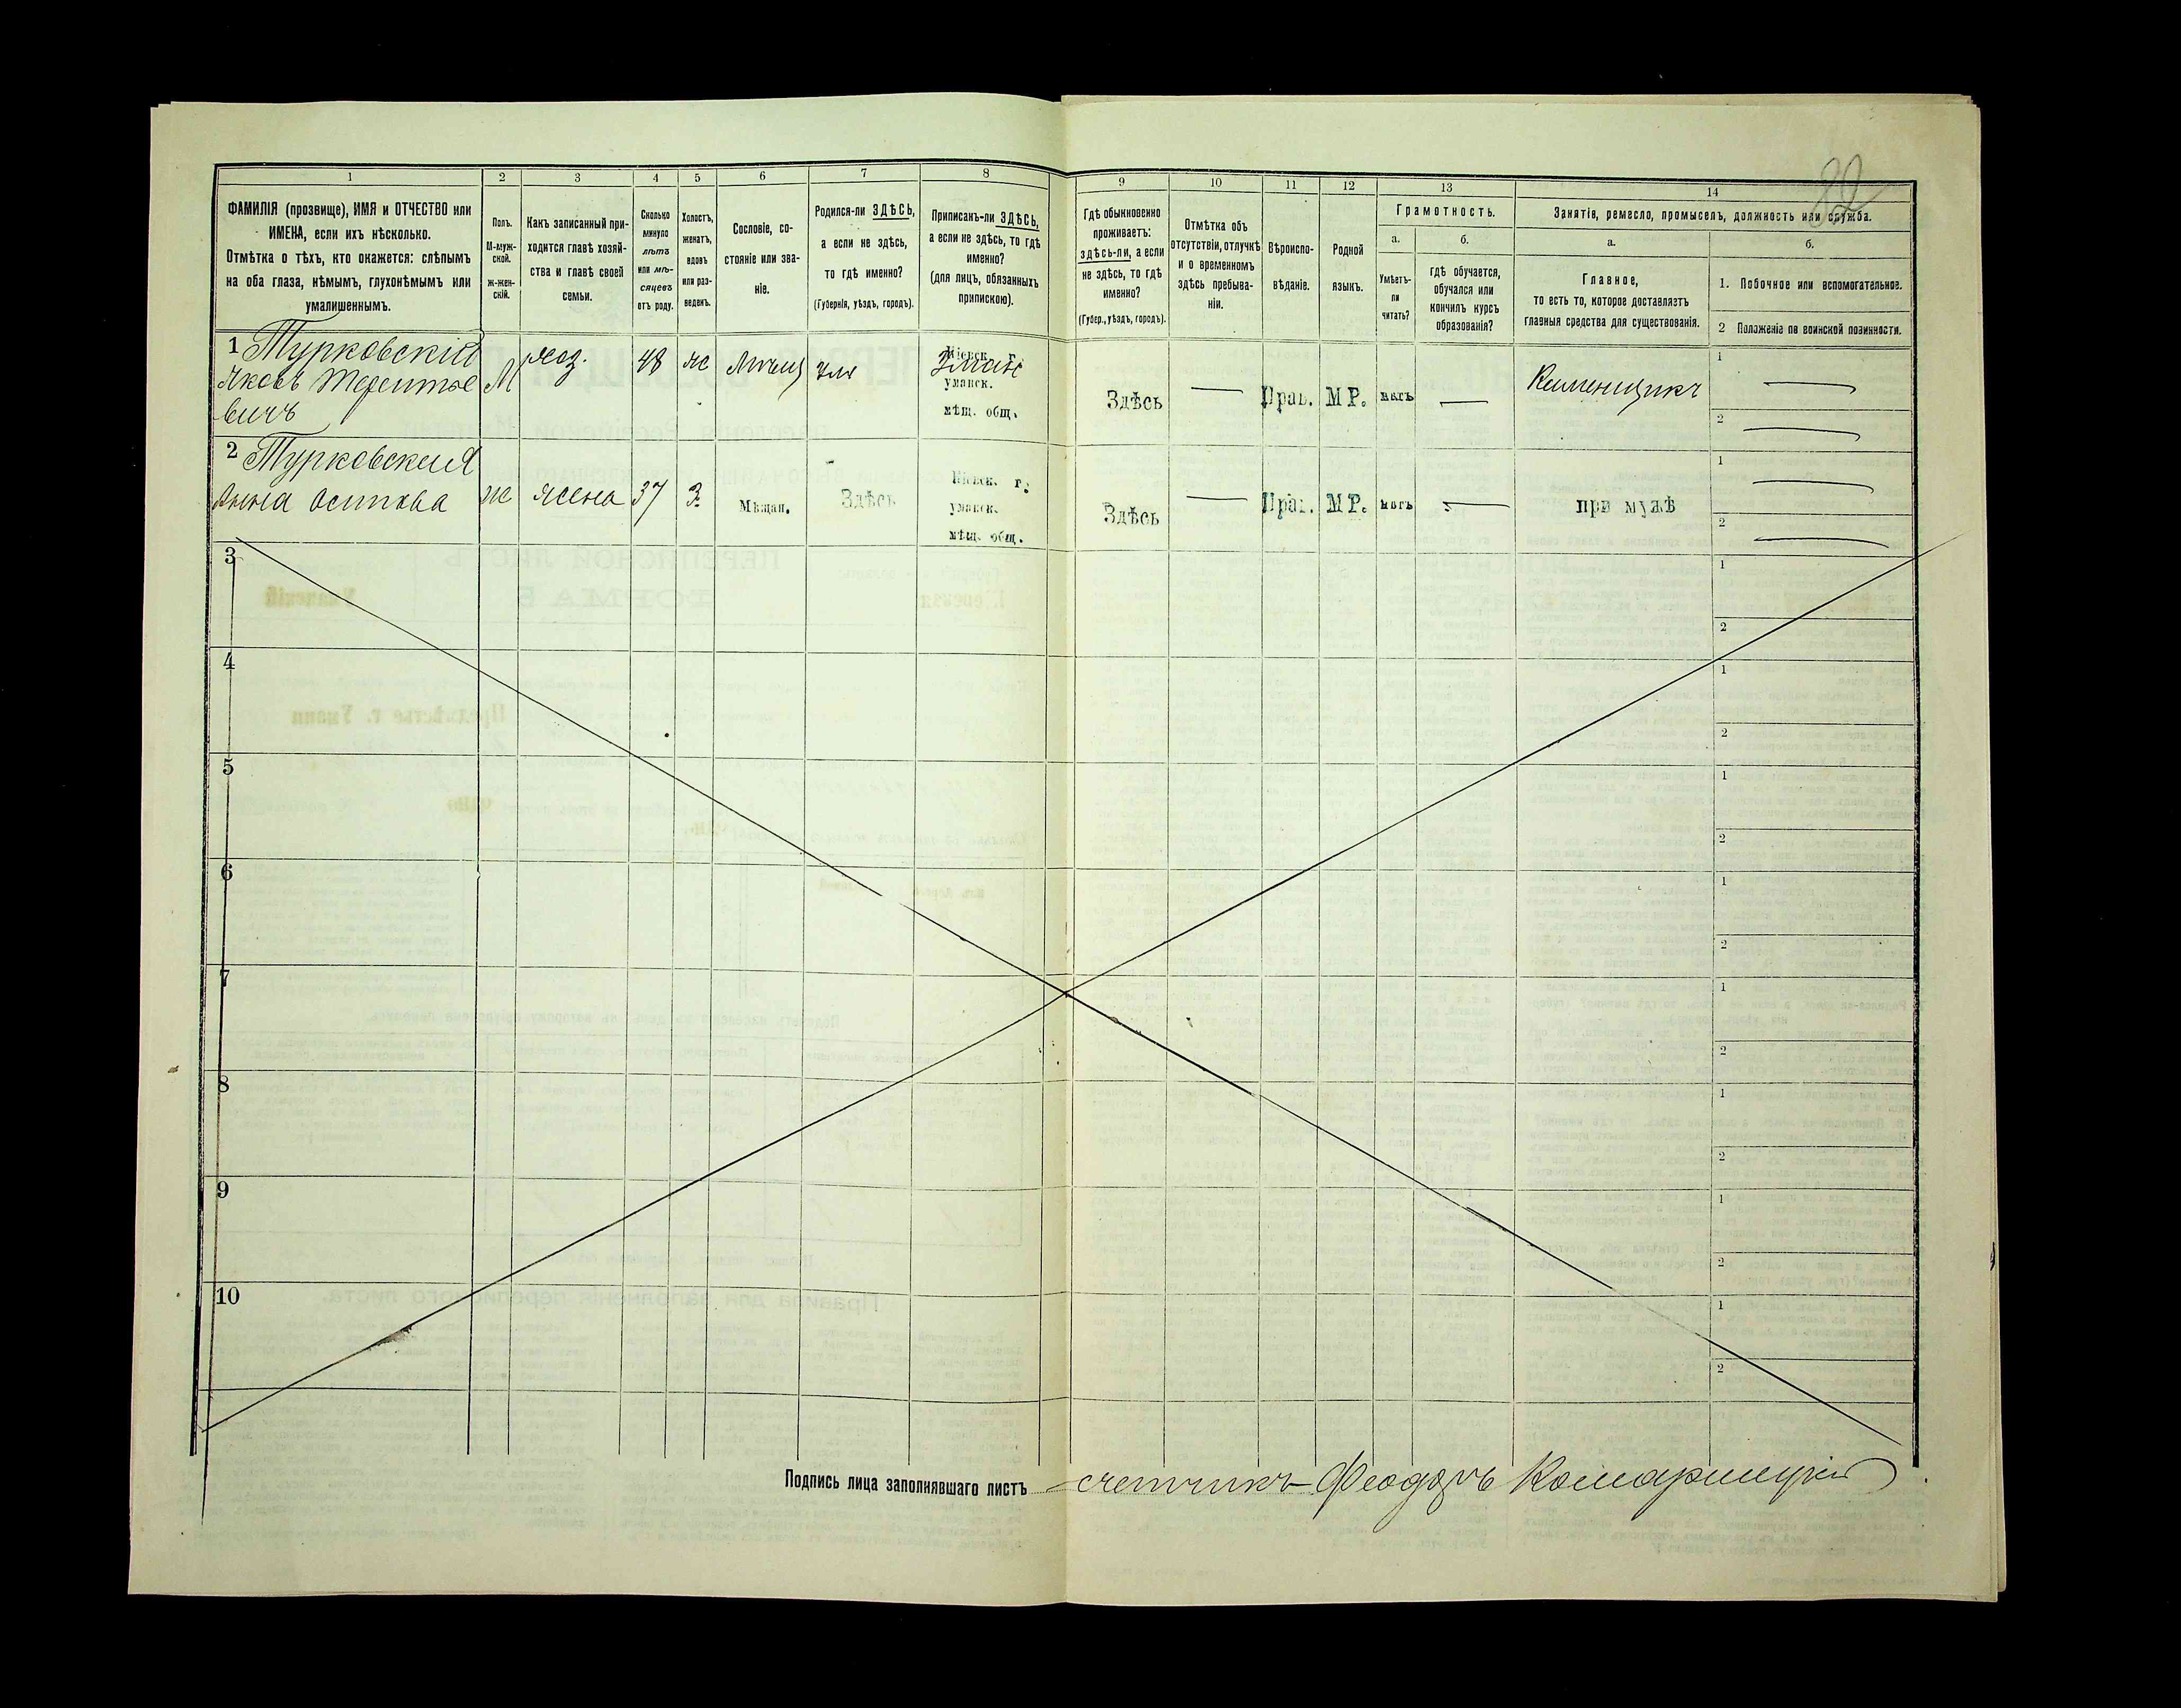 82
1 2 3 4 5 6 7 8 9 10 11 12 13 14
ФАМИЛІЯ (прозвище), ИМЯ и ОТЧЕСТВО или
ИМЕНА, если ихъ нѣсколько.
Отмѣтка о тѣхъ, кто окажется: слѣпымъ
на оба глаза, нѣмымъ, глухонѣмымъ или
умалишеннымъ.
Полъ.
М-муж-
ской.
ж-жен-
скій.
Какъ записанный при-
ходится главѣ хозяй-
ства и главѣ своей
семьи.
Сколько
минуло
лѣтъ
или мѣ-
сяцевъ
отъ роду.
Холостъ,
женатъ,
вдовъ
или раз-
веденъ.
Сословіе, со-
стояніе или зва-
ніе.
Родился-ли ЗДѢСЬ,
а если не здѣсь,
то гдѣ именно?
(Губернія, уѣздъ, городъ).
Приписанъ-ли ЗДѢСЬ,
а если не здѣсь, то гдѣ
именно?
(для лицъ, обязанныхъ
припискою).
Гдѣ обыкновенно
проживаетъ:
здѣсь-ли, а если
не здѣсь, то гдѣ
именно?
(Губер., уѣздъ, городъ).
Отмѣтка объ
отсутствіи, отлучкѣ
и о временномъ
здѣсь пребыва-
ніи.
Вѣроиспо-
вѣданіе.
Родной
языкъ.
Грамотность.
а.
Умѣетъ-
ли
читать?
б.
гдѣ обучается,
обучался или
кончилъ курсъ
образованія?
Занятія, ремесло, промыселъ, должность или служба.
а.
Главное,
то есть то, которое доставляетъ
главныя средства для существованія.
б.
1. Побочное или вспомогательное.
2 Положеніе по воинской повинности.
1 Турковскій
Яковъ Терентье
вичъ
М
хоз.
48
Кіевск. г.
уманск.
мѣщ. общ.
Здѣсь
—
Прав.
МР.
нѣтъ
—
Каменщикъ
1 —
2 —
2 Турковская
Анна Осипова
ж
жена
37
З.
Мѣщан.
Здѣсь
Кіевск. г.
уманск.
мѣщ. общ.
Здѣсь
—
Прав.
МР.
нѣтъ
—
при мужѣ
1 —
2 —
3
1
2
4
1
2
5
1
2
6
1
2
7
1
2
8
1
2
9
1
2
10
1
2
Подпись лица заполнявшаго листъ счетчикъ Феодоръ